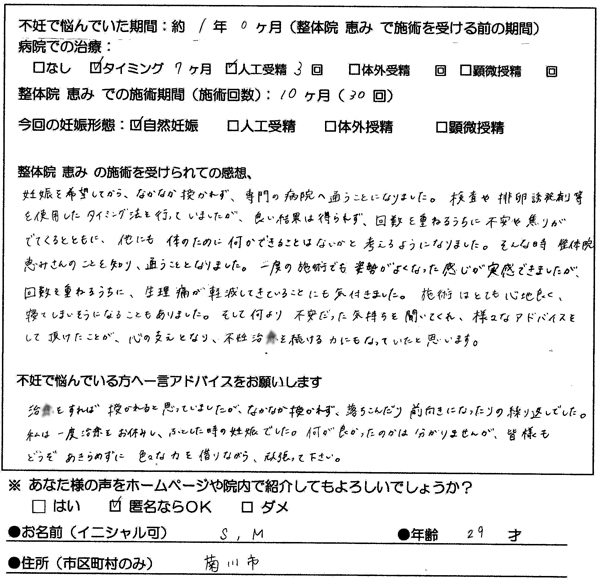 不妊で悩んでいた期間：約 1 年 0 ヶ月（整体院 恵み で施術を受ける前の期間）
病院での治療：
□なし ☑タイミング 7 ヶ月 ☑人工受精 3 回 □体外受精 回 □顕微授精 回
整体院 恵み での施術期間（施術回数）：10 ヶ月（30 回）
今回の妊娠形態：☑自然妊娠 □人工受精 □体外授精 □顕微授精
整体院 恵み の施術を受けられての感想、
妊娠を希望してから、なかなか授かれず、専門の病院へ通うことになりました。検査や排卵誘発剤等
を使用したタイミング法を行っていましたが、良い結果は得られず、回数を重ねるうちに不安や焦りが
でてくるとともに、他にも体のために何かできることはないかと考えるようになりました。そんな時 整体院
恵みさんのことを知り、通うことになりました。一度の施術でも姿勢がよくなった感じが実感できましたが、
回数を重ねるうちに、生理痛が軽減してきていることにも気付きました。施術はとても心地良く、
寝てしまいそうになることもありました。そして何より不安だった気持ちを聞いてくれ、様々なアドバイスを
して頂けたことが、心の支えとなり、不妊治を続ける力にもなっていたと思います。
不妊で悩んでいる方へ一言アドバイスをお願いします
治をすれば授かれると思っていましたが、なかなか授かれず、落ちこんだり前向きになったりの繰り返しでした。
私は一度治療をお休みし、ふとした時の妊娠でした。何が良かったのかは分かりませんが、皆様も
どうぞあきらめずに色々な力を借りながら、頑張って下さい。
※ あなた様の声をホームページや院内で紹介してもよろしいでしょうか？
□ はい ☑ 匿名ならOK □ ダメ
●お名前（イニシャル可） S，M ●年齢 29 才
●住所（市区町村のみ） 菊川市